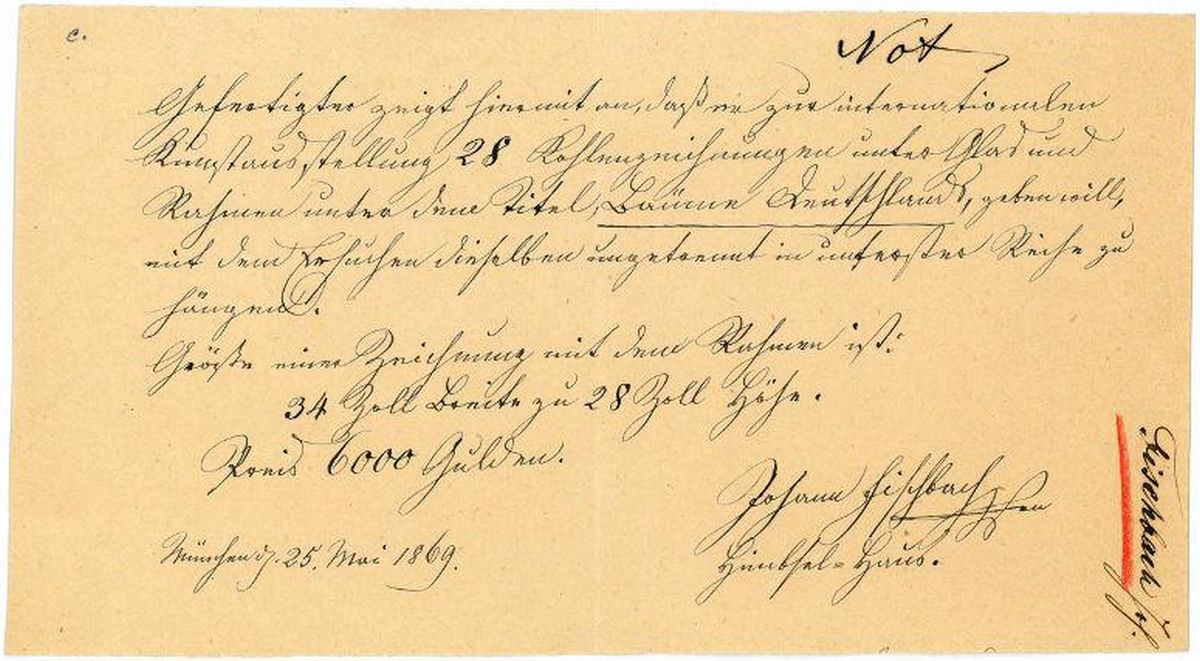 c.
Not
Gefertigter zeigt hiermit an, daß er zur internationalen
Kunstausstellung 28 Kohlenzeichnungen unter Glas und
Rahmen unter dem Titel, Bäume Deutschlands, geben will,
mit dem Ersuchen dieselben ungetrennt in unterster Reihe zu
hängen.
Größe einer Zeichnung mit dem Rahmen ist:
34 Zoll Breite zu 28 Zoll Höhe.
Preis 6000 Gulden.
Johann Fischbach
Himbsel-Haus.
München d. 25. Mai 1869.
Fischbach